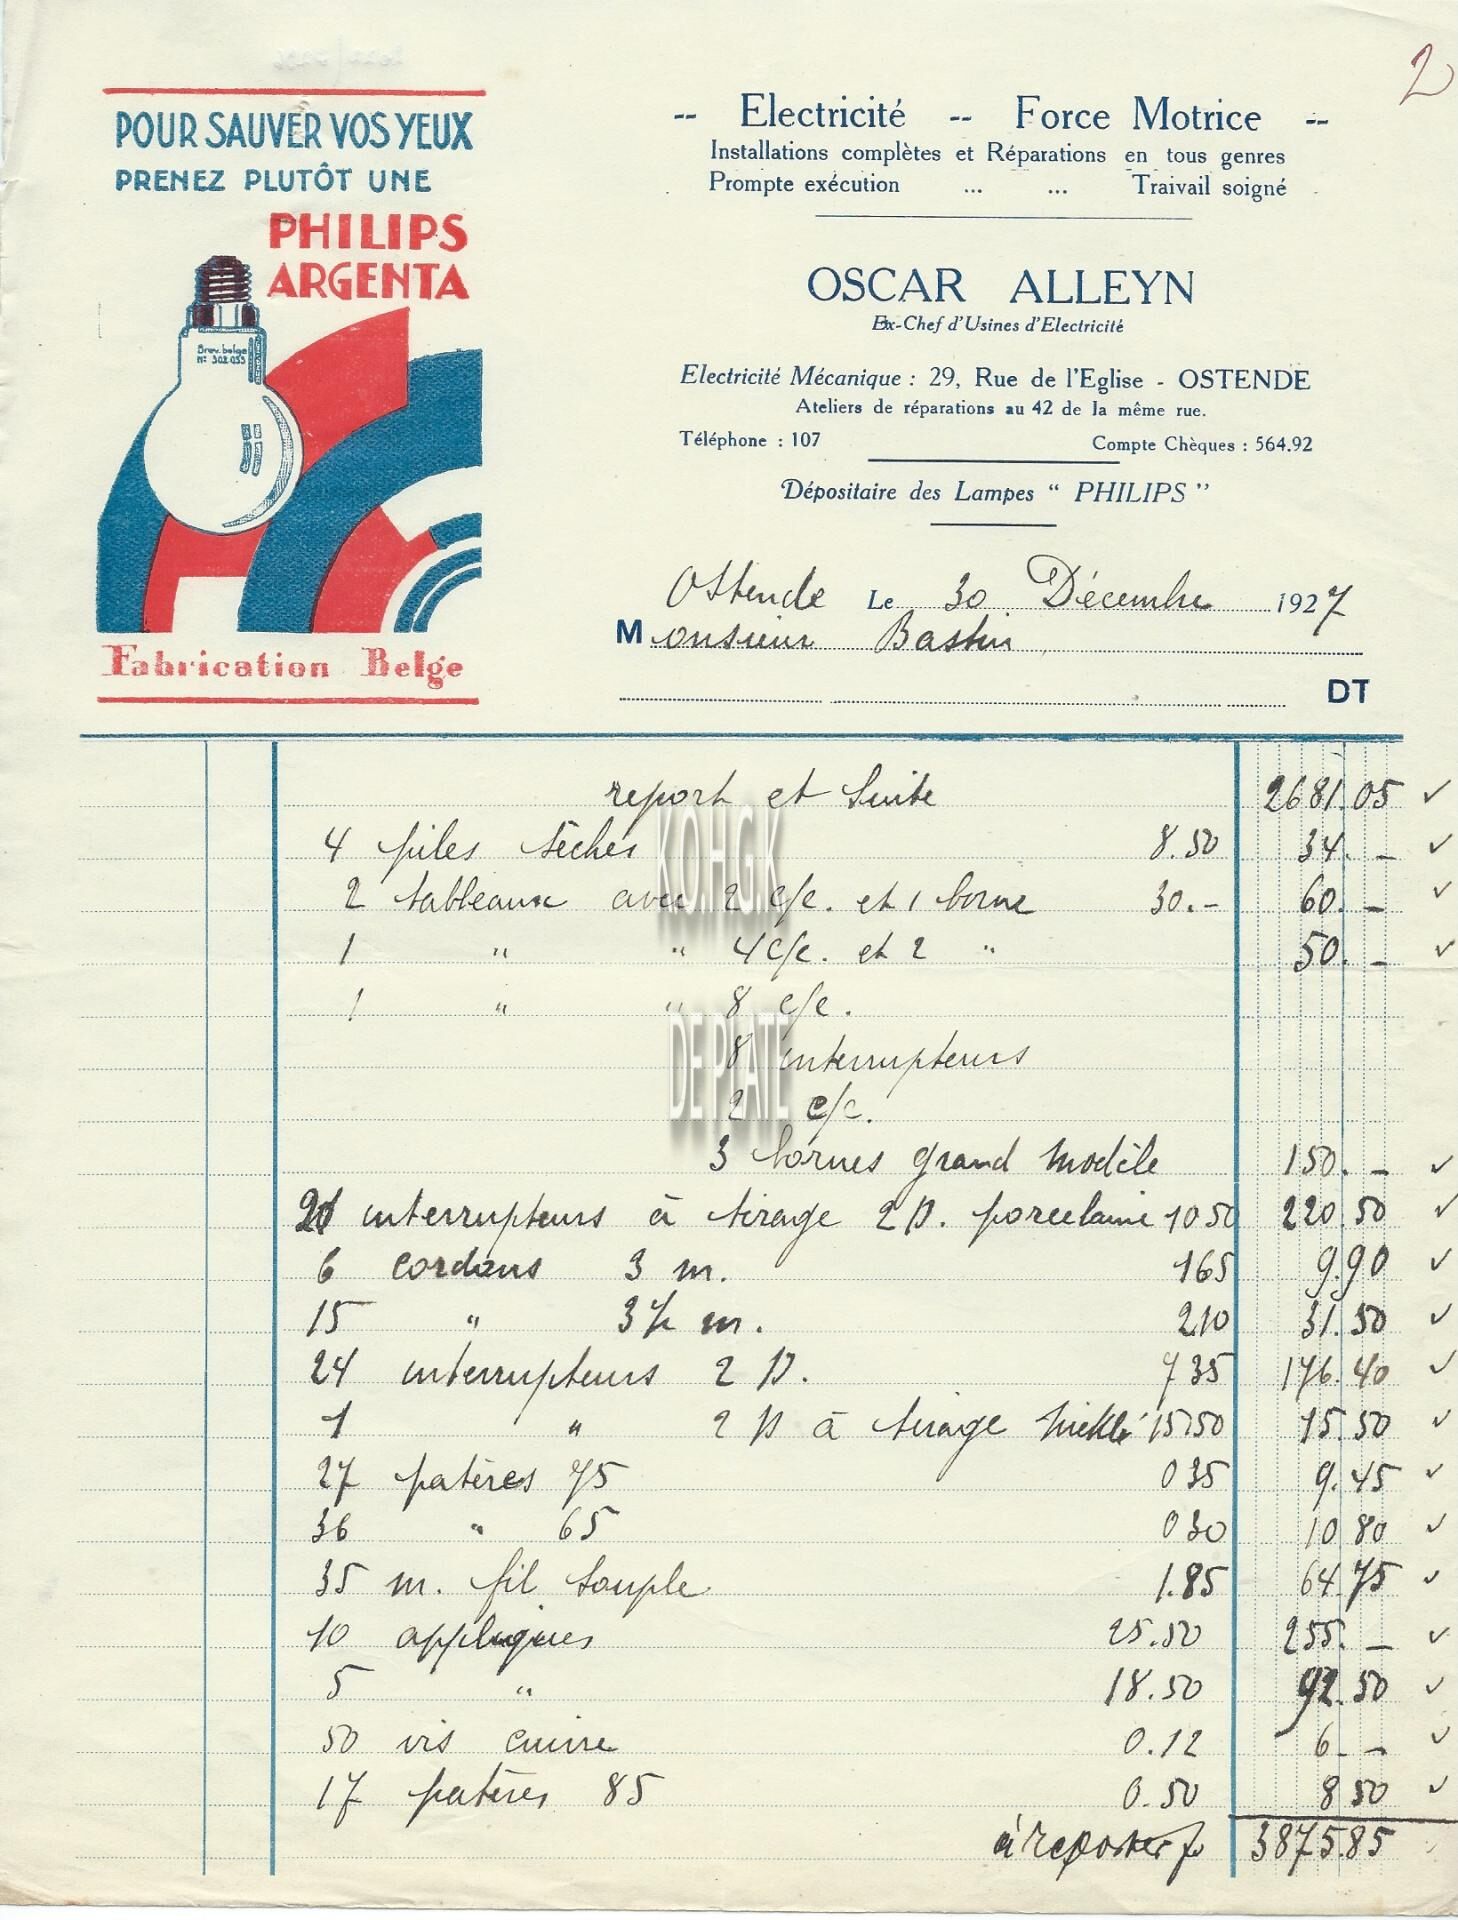 2
POUR SAUVER VOS YEUX
PRENEZ PLUTÔT UNE
PHILIPS
ARGENTA
Brev. belge
N° 302.033
Fabrication Belge
-- Electricité -- Force Motrice --
Installations complètes et Réparations en tous genres
Prompte exécution ... ... Traivail soigné
OSCAR ALLEYN
Ex-Chef d'Usines d'Electricité
Electricité Mécanique : 29, Rue de l'Eglise - OSTENDE
Ateliers de réparations au 42 de la même rue.
Téléphone : 107 Compte Chèques : 564.92
Dépositaire des Lampes “ PHILIPS ”
Ostende Le 30 Décembre 1927
Monsieur Bastin
DT
report et suite 2681.05 ✓
4 piles sèches 8.50 34.- ✓
2 tableaux avec 2 c/c. et 1 borne 30.- 60.- ✓
1 " " 4 c/c. et 2 " 50.- ✓
1 " " 8 c/c.
8 interrupteurs
2 c/c.
3 bornes grand modèle 150.- ✓
21 interrupteurs à tirage 2 p. porcelaine 10 50 220 50 ✓
6 cordons 3 m. 165 9.90 ✓
15 " 3½ m. 210 31.50 ✓
24 interrupteurs 2 p. 7 35 176.40 ✓
1 " 2 p à tirage nickelé 15.50 15.50 ✓
27 patères 75 0 35 9.45 ✓
36 " 65 0 30 10 80 ✓
35 m. fil souple 1.85 64.75 ✓
10 appliques 25.50 255.- ✓
5 " 18.50 92.50 ✓
50 vis cuivre 0.12 6.- ✓
17 patères 85 0.50 8 50 ✓
à reporter fr 3875.85
KO.H.G.K
DE PLATE